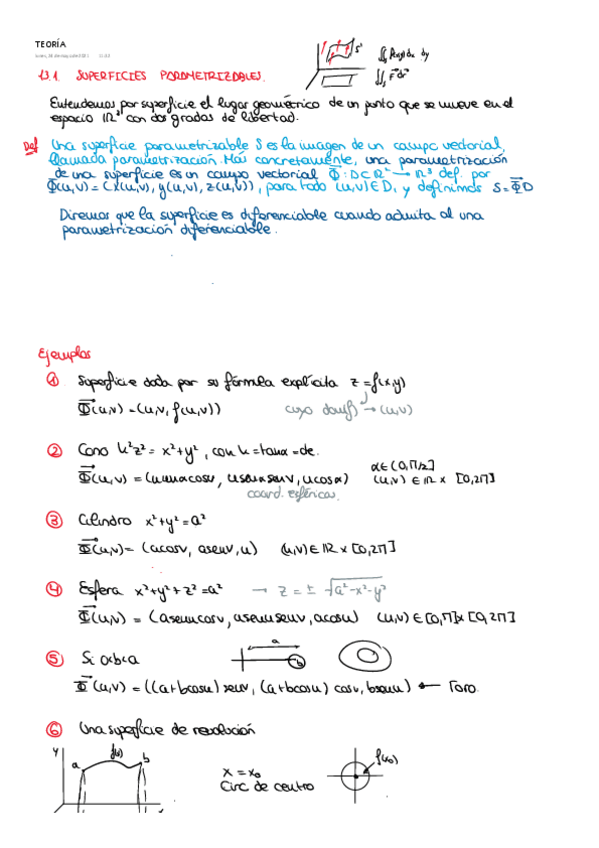 TEORÍA
13.1. SUPERFICIES PARAMETRIZABLES.
S
∬ f(x,y) dx dy
∬ₛ F⃗ dr⃗
Entendemos por superficie el lugar geométrico de un punto que se mueve en el
espacio ℝ³ con dos grados de libertad.
Def Una superficie parametrizable S es la imagen de un campo vectorial,
llamada parametrización. Más concretamente, una parametrización
de una superficie es un campo vectorial Φ⃗ : D⊂ℝ² → ℝ³ def. por
Φ(u,v) = (x(u,v), y(u,v), z(u,v)), para todo (u,v)∈D, y definimos S = Φ⃗D
Diremos que la superficie es diferenciable cuando admita al una
parametrización diferenciable.
Ejemplos
① Superficie dada por su fórmula explícita z = f(x,y)
Φ⃗(u,v) = (u,v, f(u,v)) cuyo dom(f) → (u,v)
② Cono k²z² = x²+y², con k = tanα = de.
α∈(0,π/2]
Φ⃗(u,v) = (usenαcosv, usenαsenv, ucosα) (u,v) ∈ ℝ x [0,2π]
coord. esféricas.
③ Cilindro x²+y² = a²
Φ⃗(u,v) = (acosv, asenv, u) (u,v) ∈ ℝ x [0,2π]
④ Esfera x²+y²+z² = a² → z = ± √a²-x²-y²
Φ⃗(u,v) = (asenucosv, asenusenv, acosu) (u,v) ∈ [0,π]x[0,2π]
⑤ Si 0<b<a
a
b
Φ⃗(u,v) = ((a+bcosu) senv, (a+bcosu) cosv, bsenu) ← Toro.
⑥ Una superficie de revolución
y
a
f(x)
b
x = x₀
Circ de centro
f(x₀)